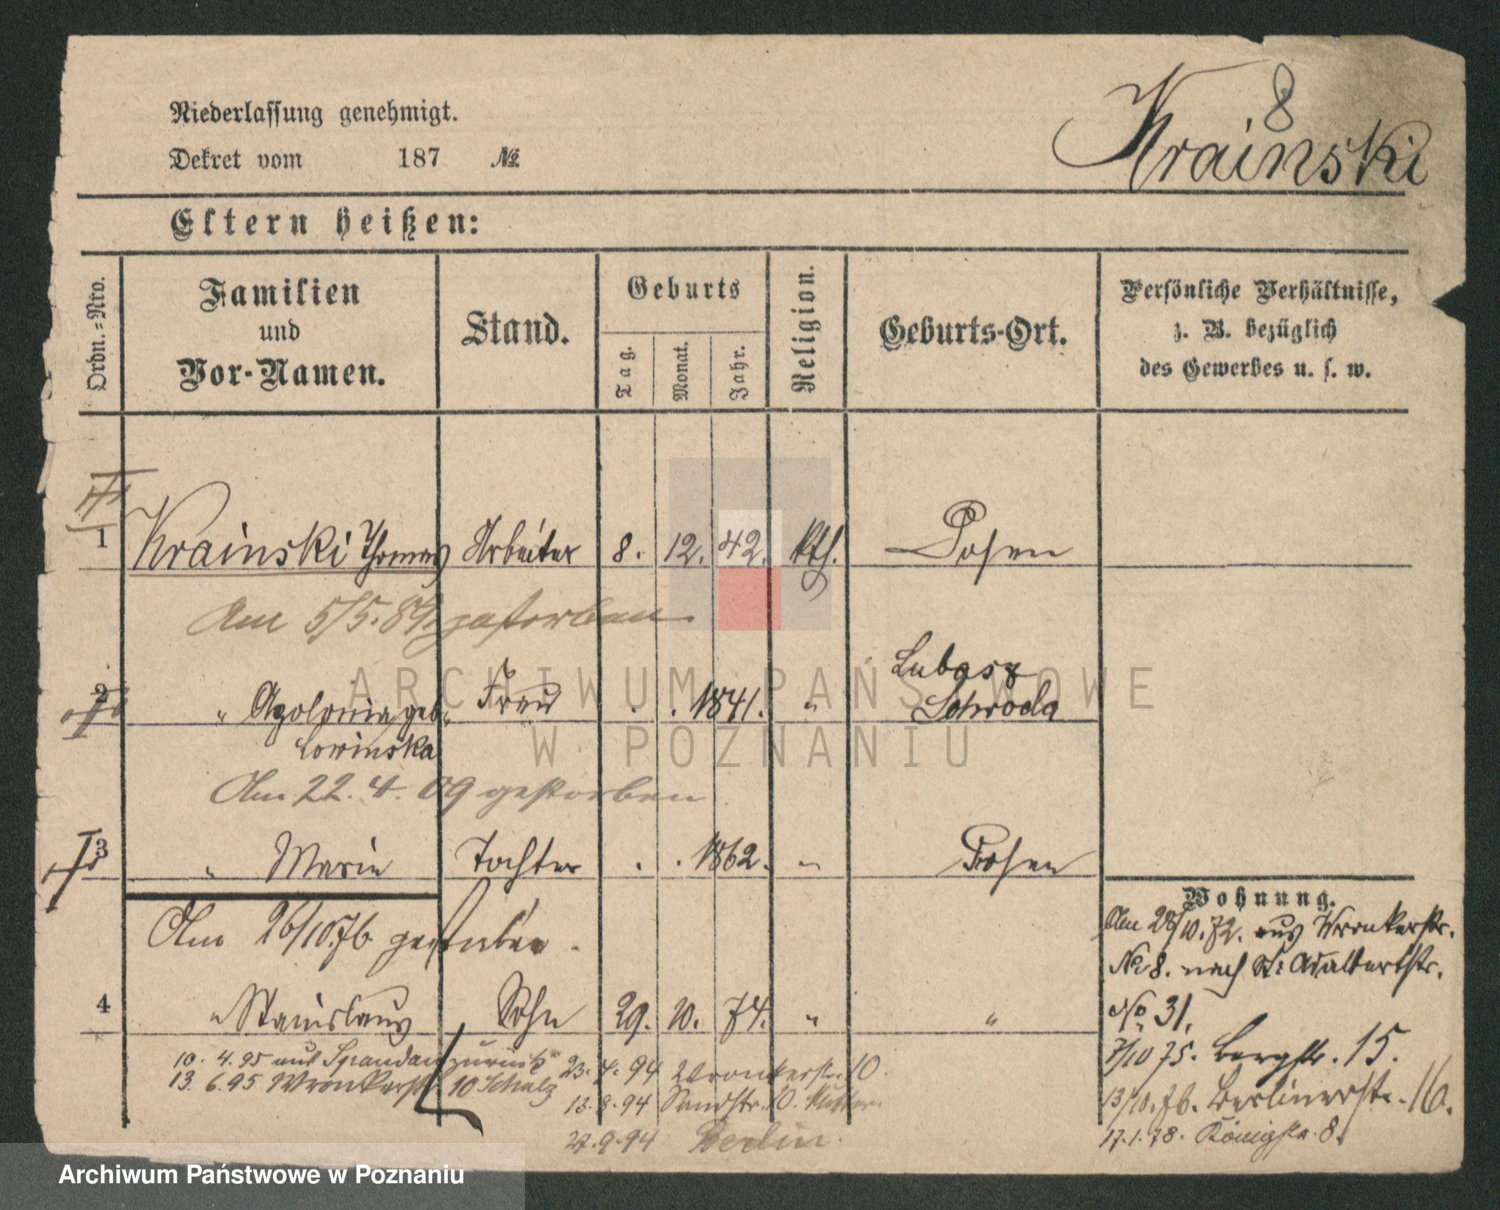 8
Krainski
Niederlassung genehmigt.
Dekret vom 187 №
Eltern heißen:
Ordn.=Nro.
Familien
und
Vor-Namen.
Stand.
Geburts
Tag.
Monat.
Jahr.
Religion.
Geburts-Ort.
Persönliche Verhältnisse,
z. B. bezüglich
des Gewerbes u. s. w.
1 Krainski Thomas Arbeiter 8. 12. 42. kth. Posen
Am 5/5. 89 gestorben
2 " Apolonia geb. Frau . . 1841. " Lubasz
Schroda
Lowinska
Am 22. 4. 09 gestorben
3 " Marie Tochter . . 1862. " Posen
Am 26/10.76 gestorben.
4 " Stanislaus Sohn 29. 10. 74. " "
10. 4. 95 aus Spandau zurück
13. 6. 95 Wronkerstr. 10 Schulz
23. 4. 94 Wronkerstr. 10.
13. 8. 94 Sandstr. 10. Mutter
27. 9. 94 Berlin.
Wohnung.
Am 28/10. 72. aus Wronkerstr.
No 8. nach St. Adalbertstr.
No 31.
7/10 75. Bergstr. 15.
13/10. 76. Berlinerstr. 16.
17. 1. 78. Königstr. 8.
ARCHIWUM PAŃSTWOWE
W POZNANIU
Archiwum Państwowe w Poznaniu